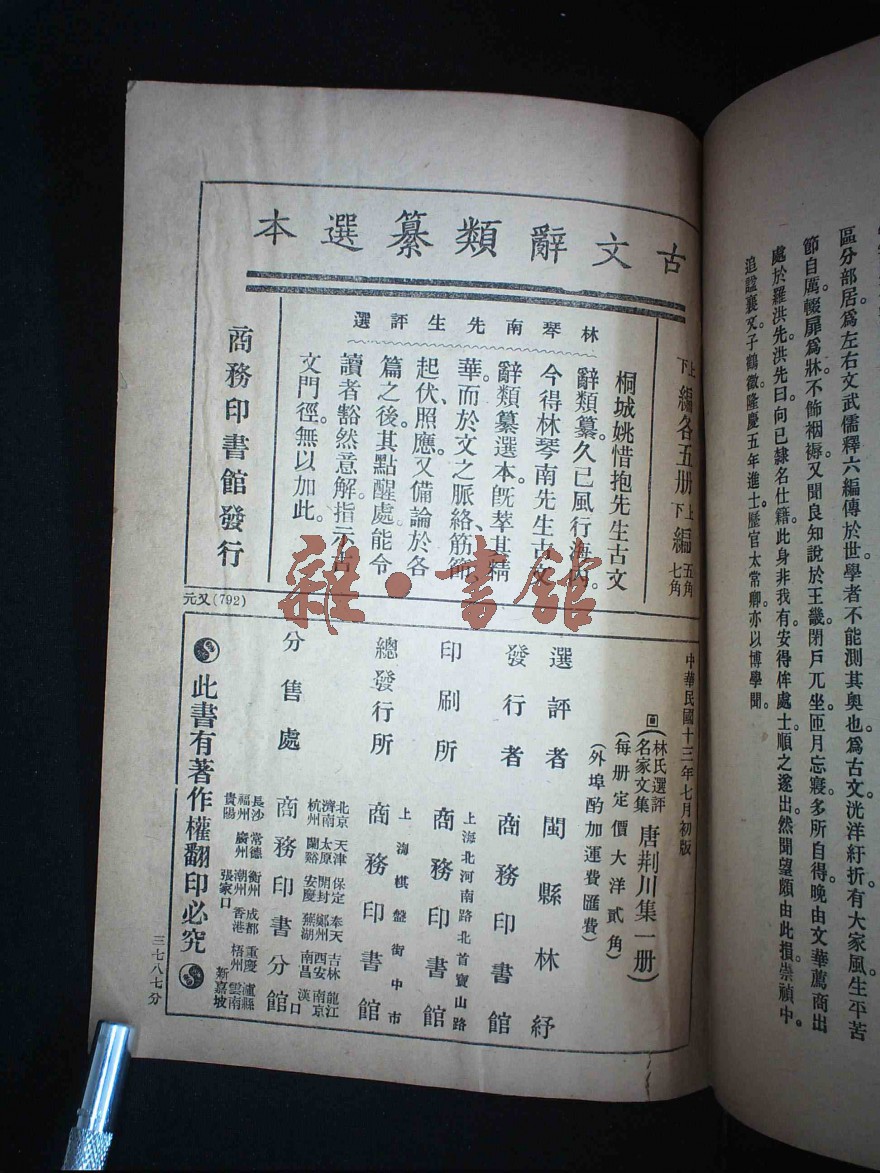 區分部居爲左右文武儒釋六編傳於世學者不能測其奧也爲古文洸洋紆折有大家風生平苦
節自厲輟扉爲牀不飾裀褥又聞良知說於王畿閉戶兀坐匝月忘寢多所自得晚由文華薦商出
處於羅洪先洪先曰向已隸名仕籍此身非我有安得侔處士順之遂出然聞望頗由此損崇禎中。
追諡襄文子鶴徵隆慶五年進士歷官太常卿亦以博學聞。
古文辭類纂選本
上下編各五册 上編五角 下編七角
林琴南先生評選
桐城姚惜抱先生古文
辭類纂久已風行海內。
今得林琴南先生古文
辭類纂選本既萃其精
華。而於文之脈絡、筋節、
起伏、照應、又備論於各
篇之後。其點醒處能令
讀者豁然意解。指示古
文門徑無以加此。
商務印書館發行
元又(792)
中華民國十三年七月初版
(林氏選評名家文集 唐荆川集一册)
(每册定價大洋貳角)
(外埠酌加運費匯費)
選評者 閩縣林紓
發行者 商務印書館
印刷所 上海北河南路北首寶山路 商務印書館
總發行所 上海棋盤街中市 商務印書館
分售處 商務印書分館
北京 天津 保定 奉天 吉林 龍江
濟南 太原 開封 鄭州 西安 南京
杭州 蘭谿 安慶 蕪湖 南昌 漢口
長沙 常德 衡州 成都 重慶 瀘縣
福州 廣州 潮州 香港 梧州 雲南
貴陽 張家口 新嘉坡
此書有著作權翻印必究
三七八七分
雜·書館